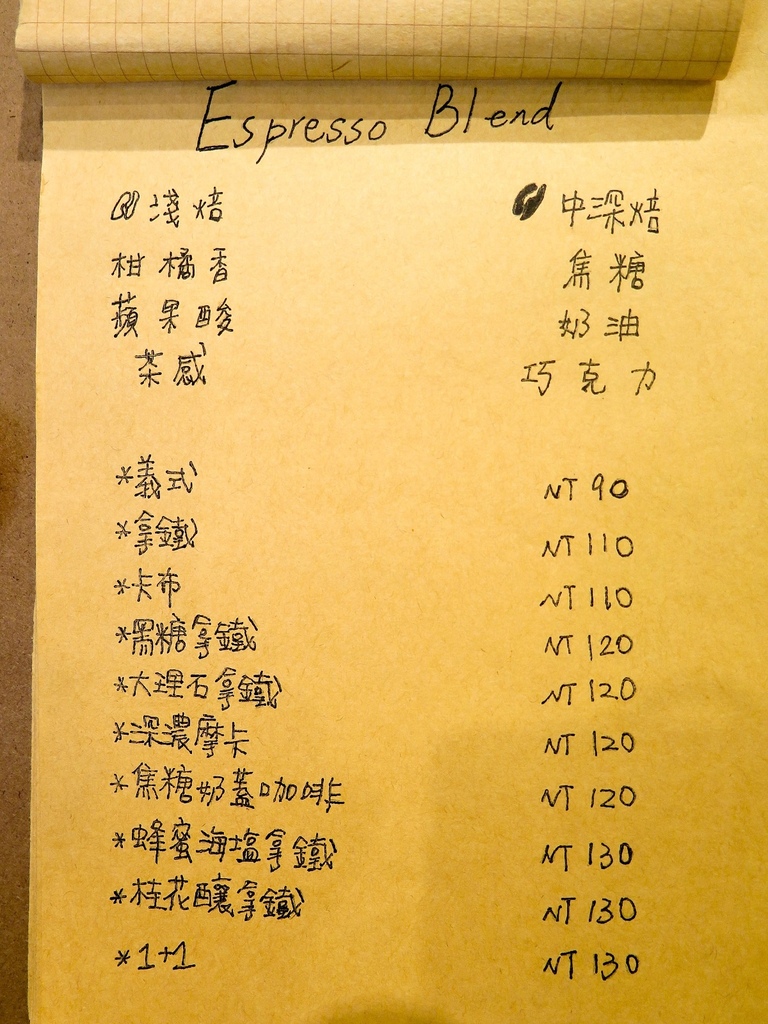 Espresso Blend
淺焙 中深焙
柑橘香 焦糖
蘋果酸 奶油
茶感 巧克力
*義式 NT 90
*拿鐵 NT 110
*卡布 NT 110
*黑糖拿鐵 NT 120
*大理石拿鐵 NT 120
*深濃摩卡 NT 120
*焦糖奶蓋咖啡 NT 120
*蜂蜜海塩拿鐵 NT 130
*桂花釀拿鐵 NT 130
*1+1 NT 130